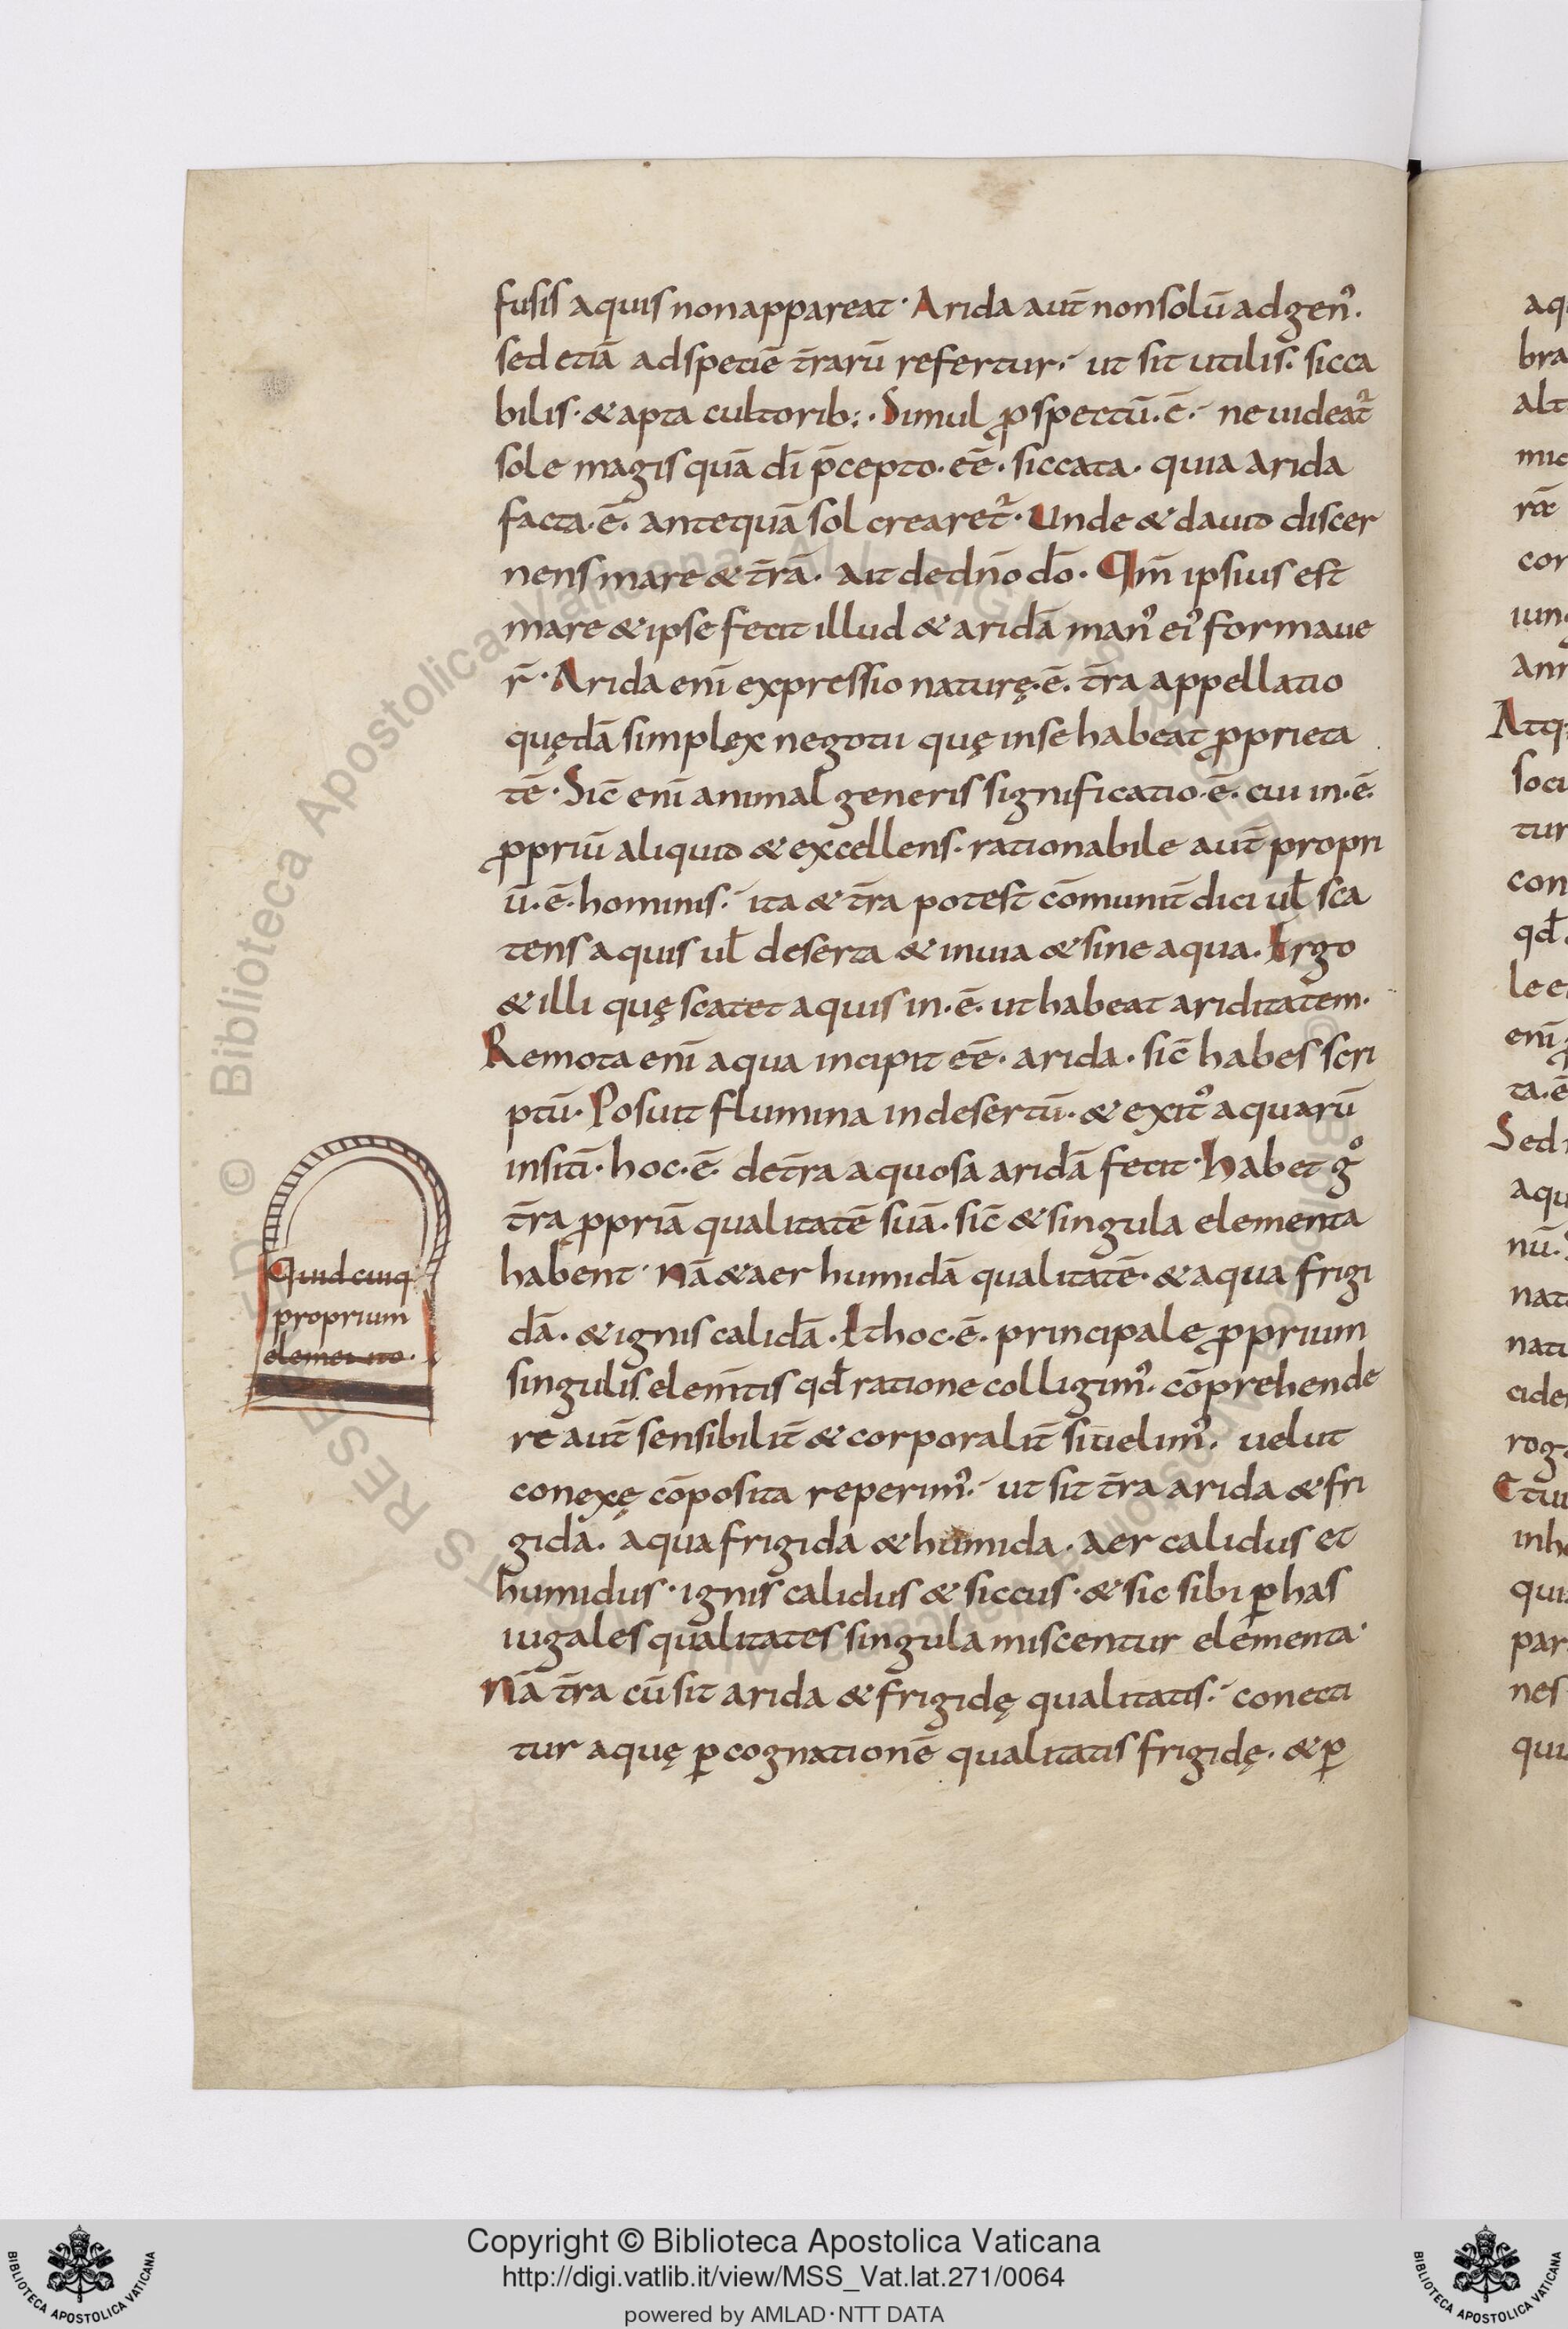 fusis aquis non appareat · Arida aut̄ non solū ad gen᾿.
sed etiā ad spetiē t̄rarū refertur. ut sit utilis. sicca
bilis · & apta cultorib; · Simul ꝓspectū · ē · ne uideat᾿
sole magis quā dī p̄cepto · eē · siccata · quia arida
facta · ē · antequā sol crearet᾿ · Unde & dauid discer
nens mare & t̄rā · ait de dn̄o dō · Qm̄ ipsius est
mare & ipse fecit illud & aridā man᾿ ei᾿ formaue
r̄ · Arida enī expressio naturę · ē · t̄ra appellatio
quędā simplex negotii quę in se habeat ꝓprieta
tē · Sic̄ enī animal generis significatio · ē · cui in · ē ·
ꝓpriū aliquid & excellens · rationabile aut̄ propri
ū · ē · hominis. ita & t̄ra potest cōmunit̄ dici ul̄ sca
tens aquis ul̄ deserta & inuia & sine aqua. Ergo
& illi quę scatet aquis in · ē · ut habeat ariditatem ·
Remota enī aqua incipit eē · arida · sic̄ habes scri
ptū · Posuit flumina in desertū · & exit᾿ aquarū
in sitī · hoc · ē · de t̄ra aquosa aridā fecit · Habet gº
t̄ra ꝓpriā qualitatē suā · sic̄ & singula elementa
habent · Nā & aer humidā qualitatē · & aqua frigi
dā · & ignis calidā · Et hoc · ē · principale ꝓprium
singulis elem̄tis qd̄ ratione colligim᾿ · cōprehende
re aut̄ sensibilit̄ & corporalit̄ si uelim᾿ · uelut
conexę cōposita reperim᾿ · ut sit t̄ra arida & fri
gida · aqua frigida & humida · aer calidus et
humidus · ignis calidus & siccus · & sic sibi ꝑ has
iugales qualitates singula miscentur elementa ·
Nā t̄ra cū sit arida & frigidę qualitatis. conecti
tur aquę ꝑ cognationē qualitatis frigidę · & ꝑ
Quid cuiq;
proprium
elemento ·
aq
bra
alt
mic
con
iun
ann
Atq;
soci
tur
con
qd̄
le e
enī
ta · ē
Sed
aqu
nū ·
nat
natu
cide
rog
Etui
inh
qui
par
nes
qui
© Biblioteca Apostolica Vaticana
Copyright © Biblioteca Apostolica Vaticana
http://digi.vatlib.it/view/MSS_Vat.lat.271/0064
powered by AMLAD·NTT DATA
BIBLIOTECA APOSTOLICA VATICANA
BIBLIOTECA APOSTOLICA VATICANA